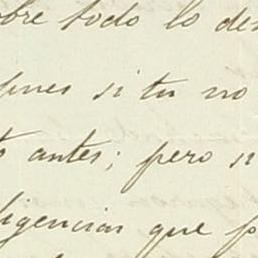 obre todo lo de
pues si tu no
antes; pero si
ligencias que p